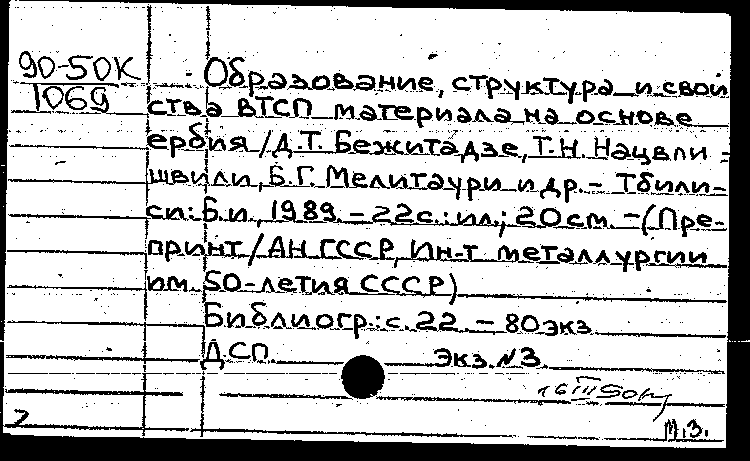 90-50К
1069
Образование, структура и свой
ства ВТСП материала на основе
ербия / Д.Т. Бежитадзе, Т.Н. Нацвли-
швили, Б.Г. Мелитаури и др. - Тбили-
си: Б.и., 1989. - 22с.: ил.; 20см. - (Пре-
принт / АН ГССР, Ин-т металлургии
им. 50-летия СССР)
Библиогр.: с. 22. - 80экз
ДСП. Экз. №3.
М.З.